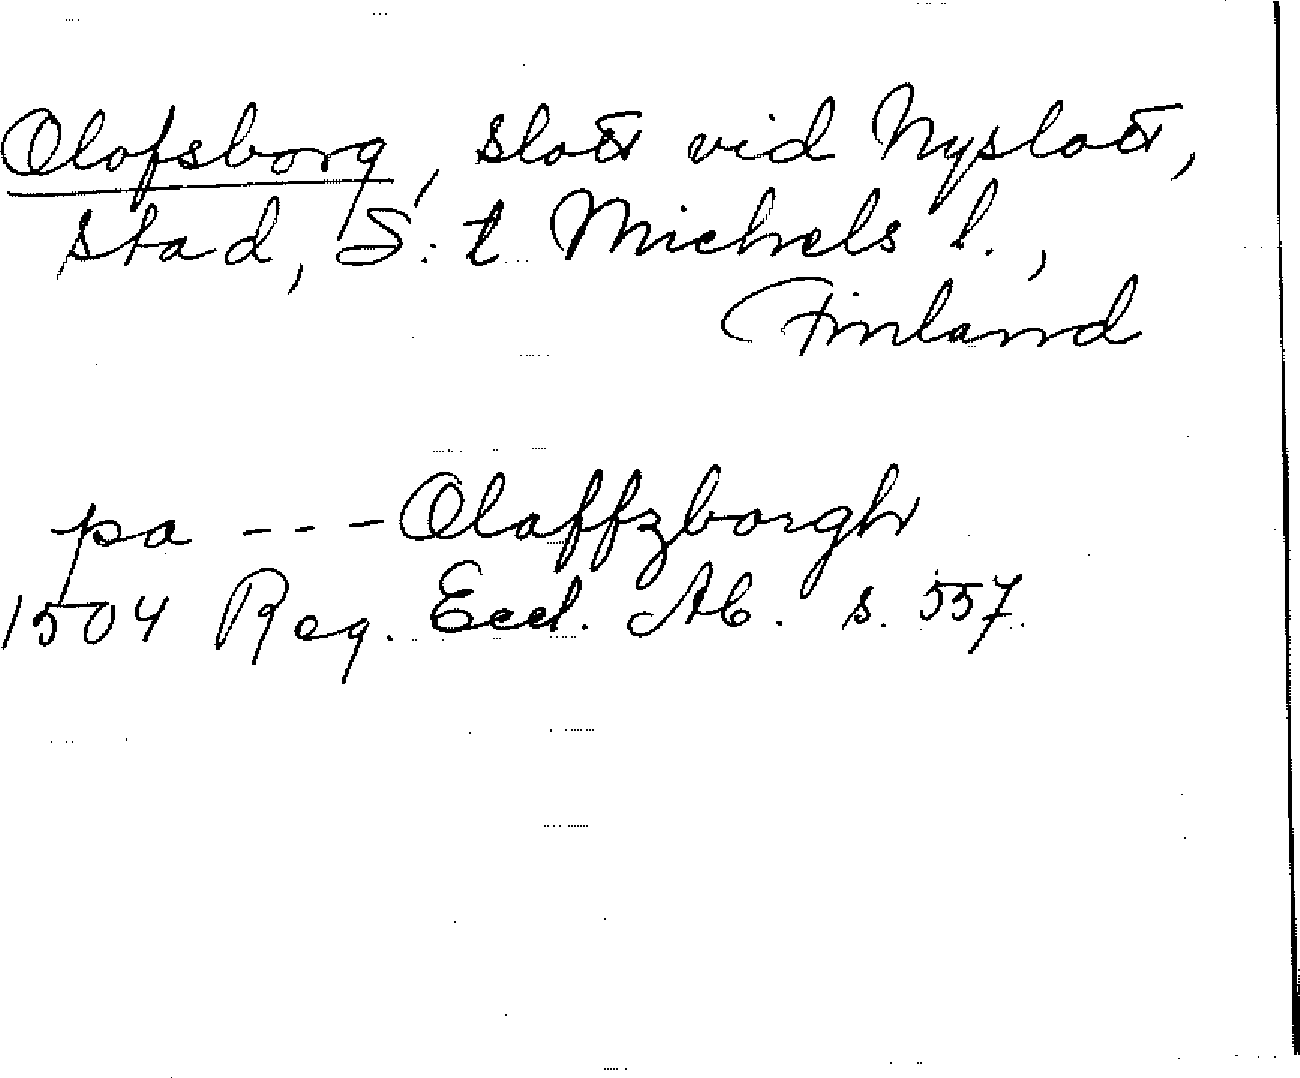 Olofsborg, slott vid Nyslott,
stad, S:t Michels l.,
Finland
pa --- Olaffzborgh
1504 Reg. Eccl. Ab. s. 557.